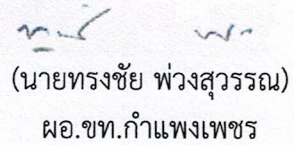 (นายทรงชัย พ่วงสุวรรณ)
ผอ.ขท.กำแพงเพชร